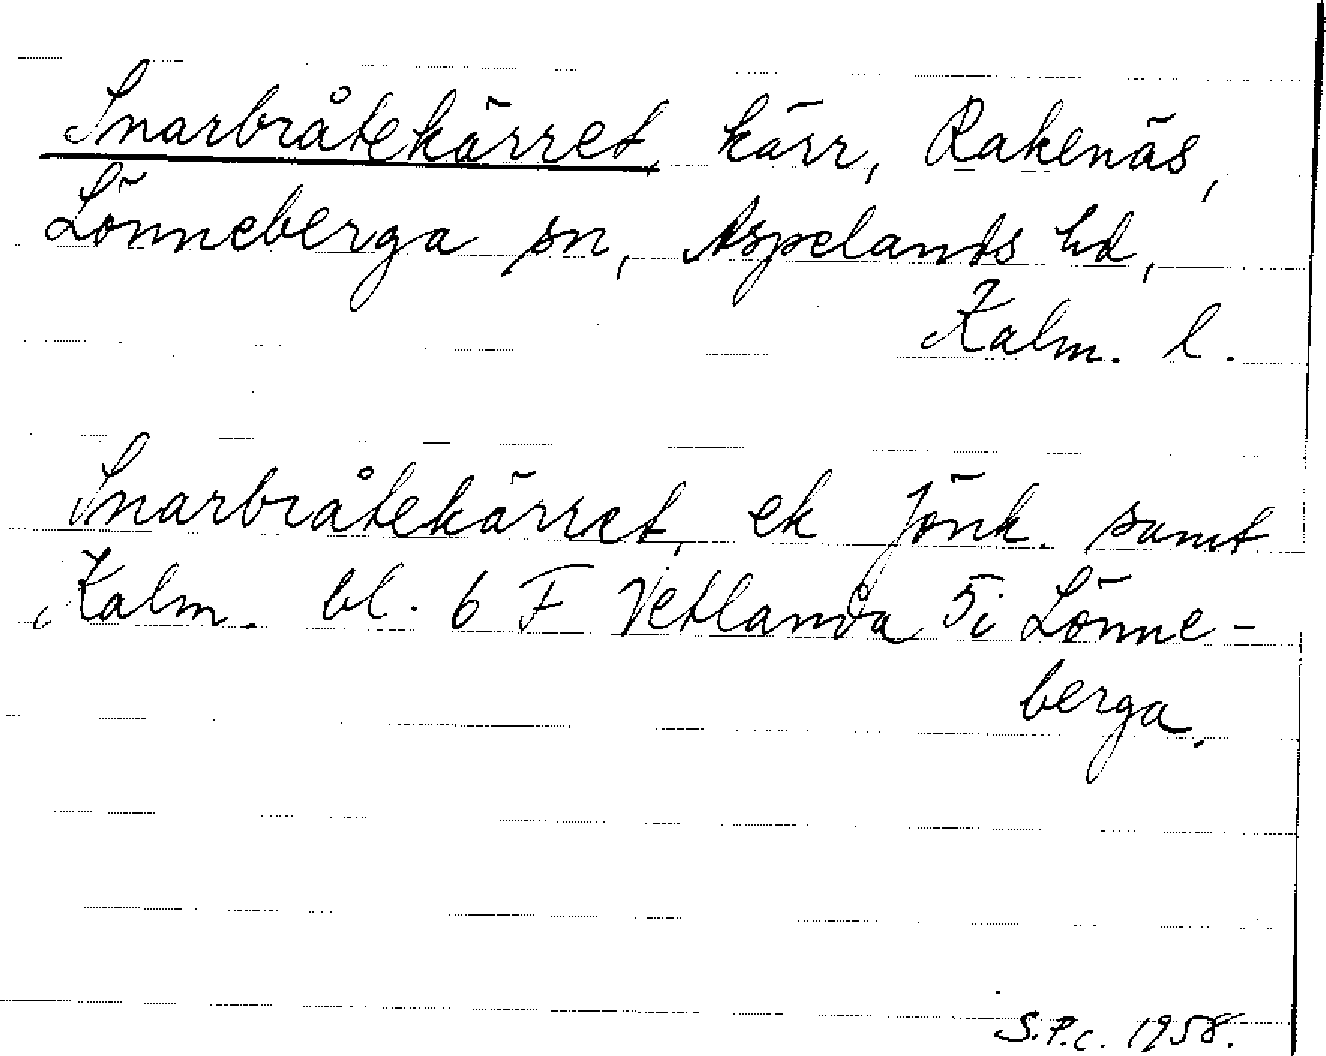 Snarbråtekärret, kärr, Rakenäs,
Lönneberga sn, Aspelands hd,
Kalm. l.
Snarbråtekärret, ek Jönk. samt
Kalm. bl. 6 F Vetlanda 5i Lönne-
berga.
S.P.c. 1958.